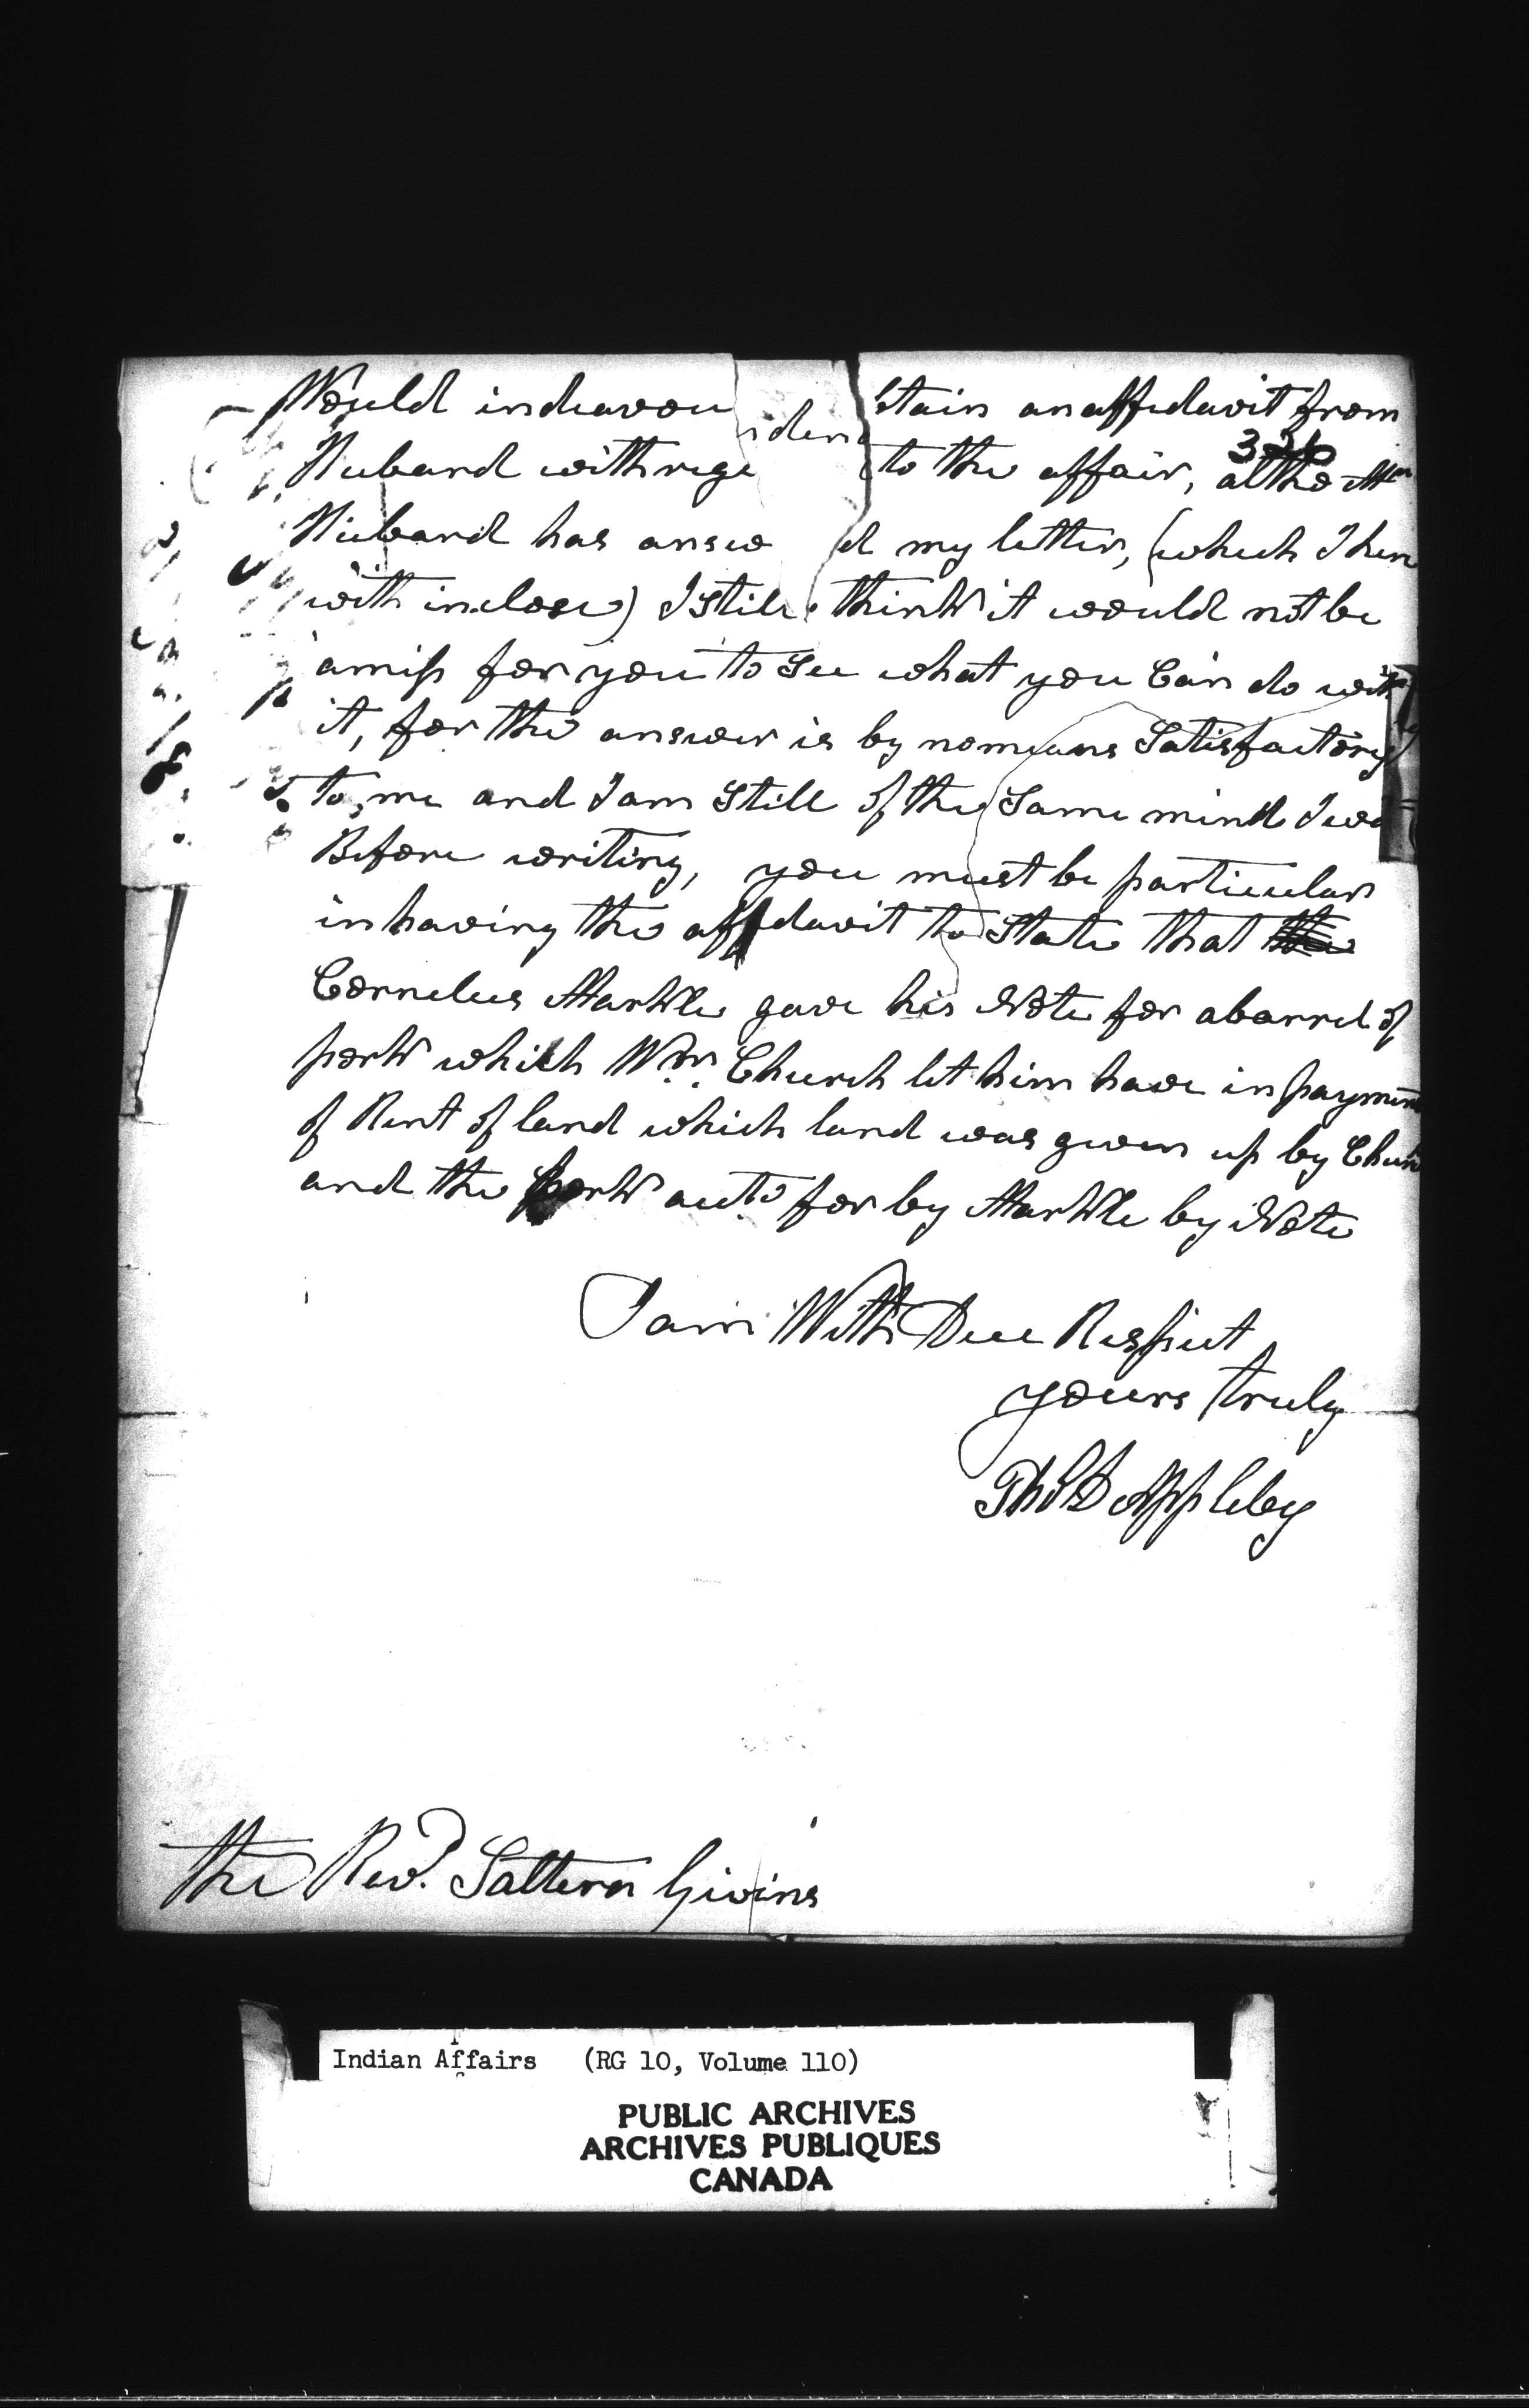 Would indeavou iden btain an affidavit from
326
Nuband with rega to the affair, altho Mr
Nuband has answ d my letter, (which I here
with inclose) I still think it would not be
amiss for you to See what you Can do with
it, for the answer is by no means Satisfactory
to me and I am Still of the Same mind I wa
Before writing, you must be particular
in having the affidavit to State that the
Cornelius Markle gave his Note for a barrel of
pork which Wm. Church let him have in payment
of Rent of land which land was given up by Church
and the pork auto for by Markle by Note
I am With Due Respect
yours truly
Thos D Appleby
the Revd. Saltern Givins
Indian Affairs (RG 10, Volume 110)
PUBLIC ARCHIVES
ARCHIVES PUBLIQUES
CANADA